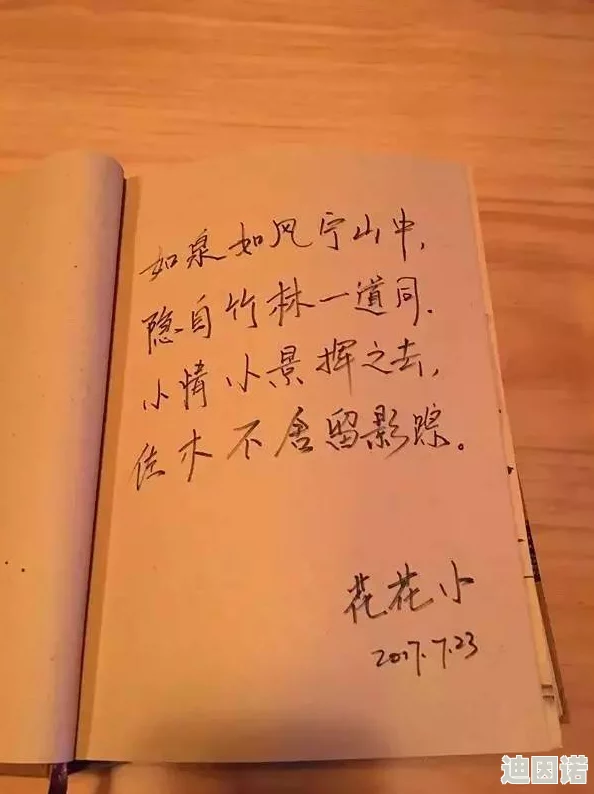 如泉如风宁山中，
隐自竹林一道同．
小情小景挥之去，
佐木不舍留影踪。
花花小
2017.7.23
迪因诺